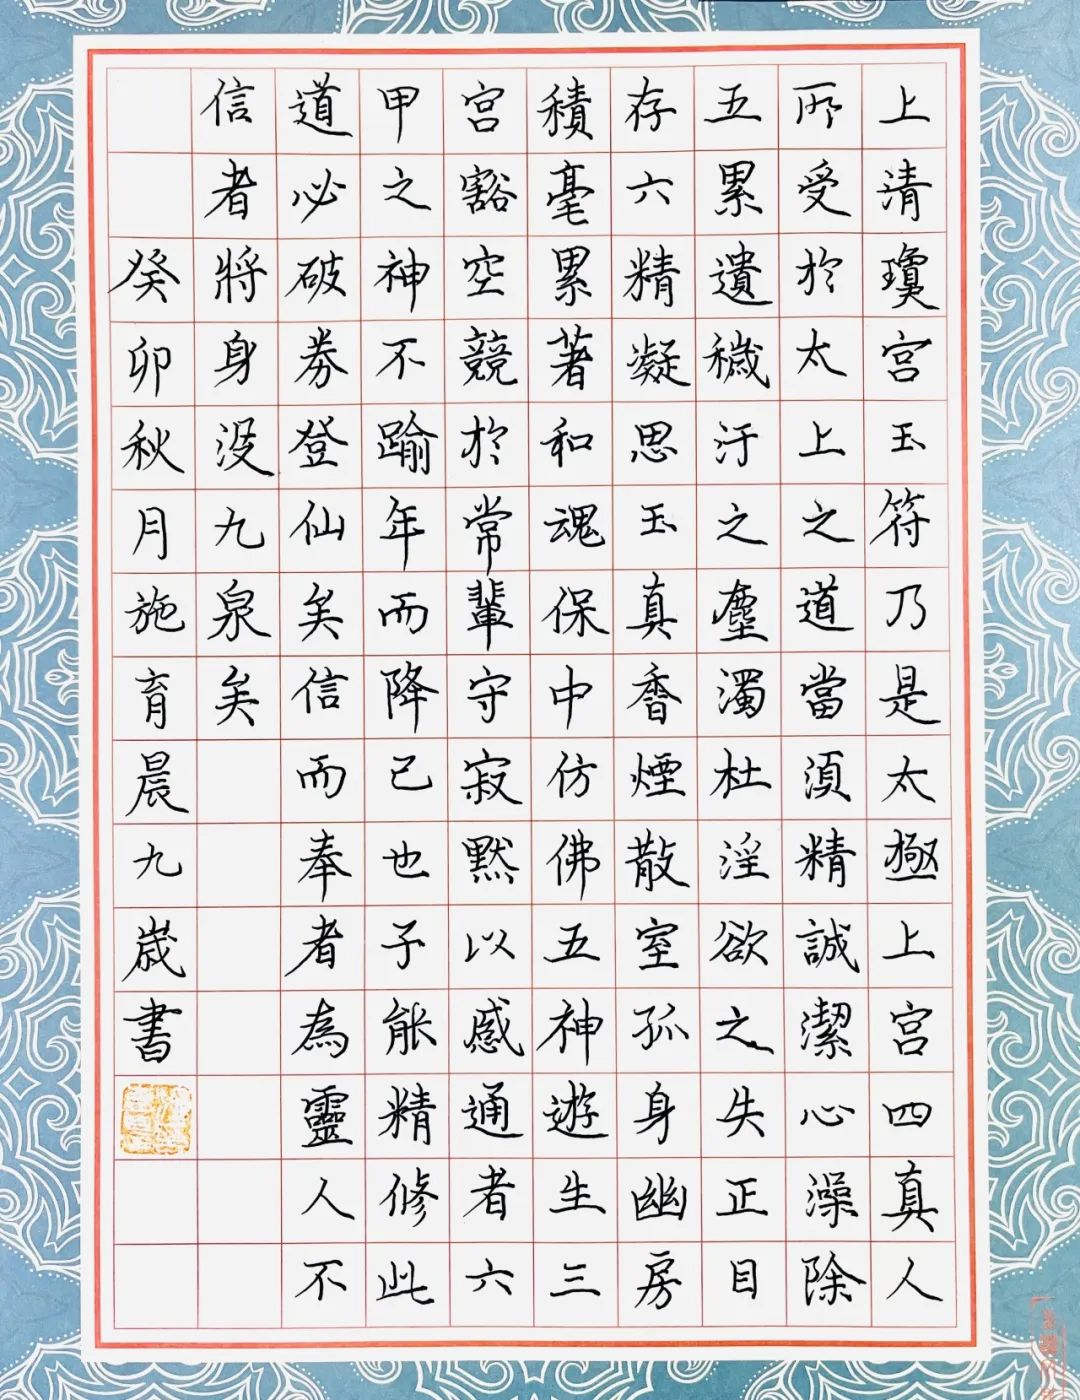 上清瓊宮玉符乃是太極上宮四真人
所受於太上之道當須精誠潔心澡除
五累遺穢汙之塵濁杜淫欲之失正目
存六精凝思玉真香煙散室孤身幽房
積毫累著和魂保中仿佛五神遊生三
宮豁空競於常輩守寂默以感通者六
甲之神不踰年而降己也子能精修此
道必破券登仙矣信而奉者為靈人不
信者將身沒九泉矣
癸卯秋月施育晨九歲書